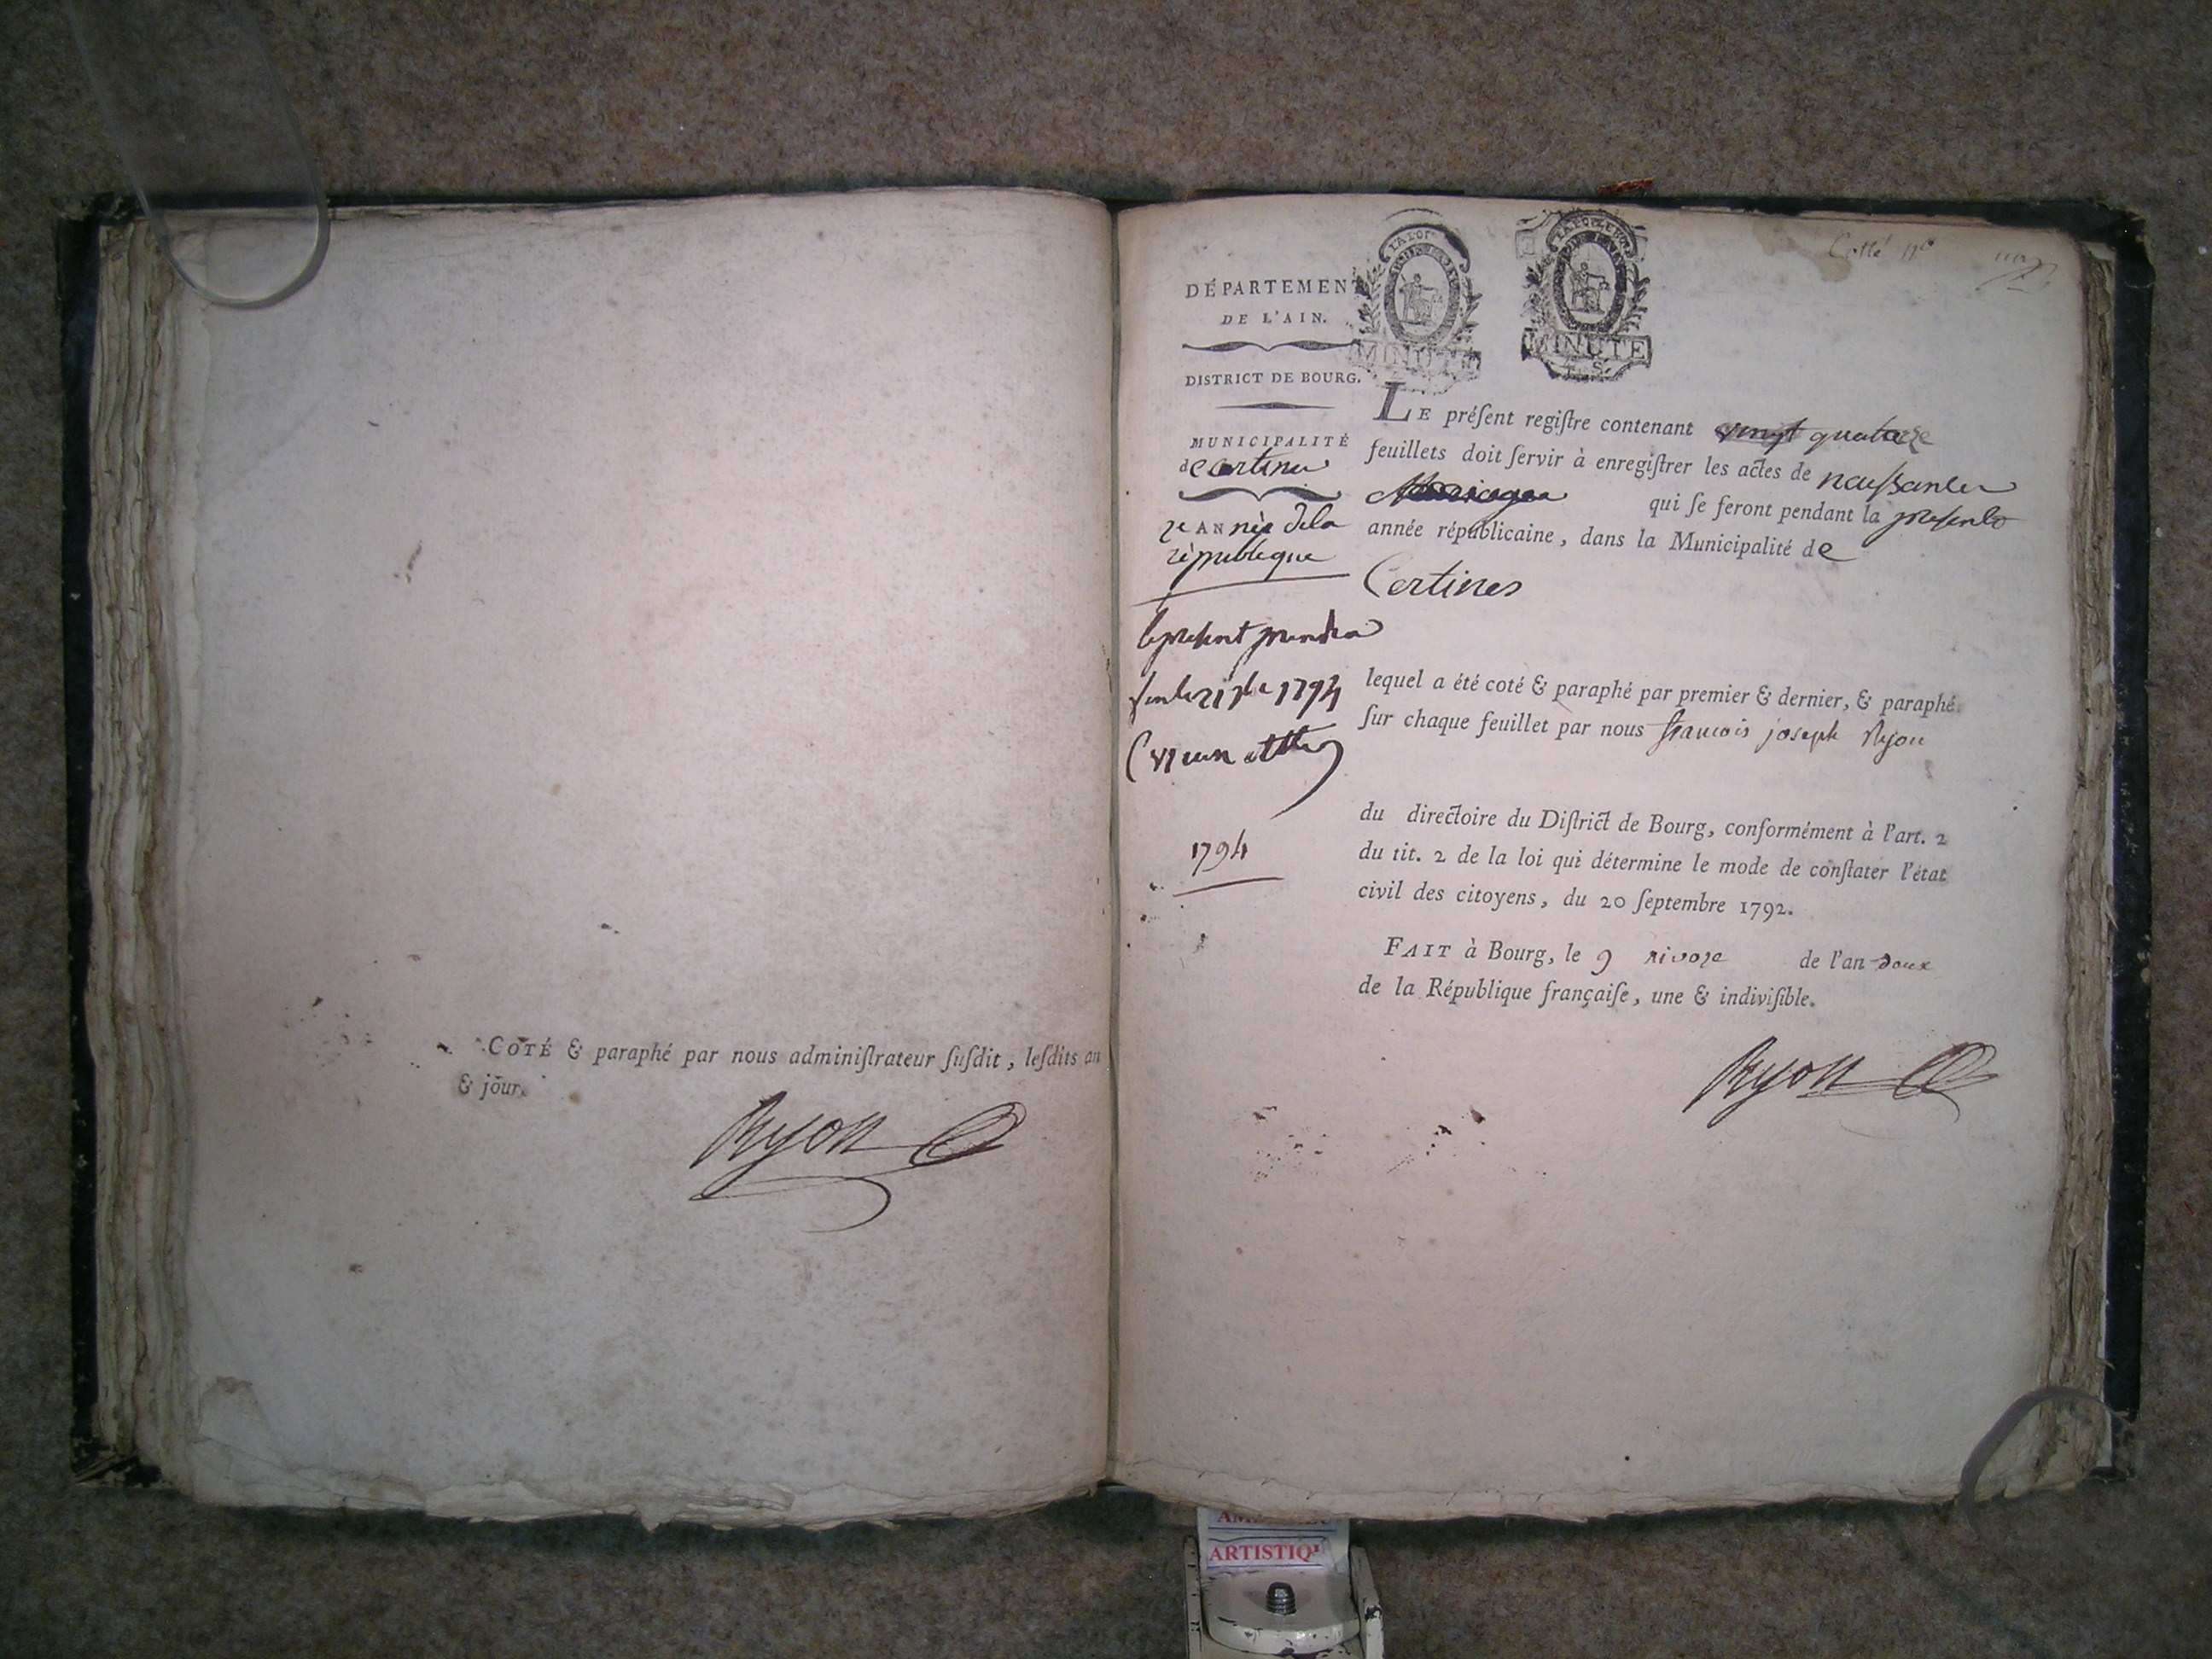 COTÉ & paraphé par nous adminiſtrateur ſuſdit, leſdits an
& jour.
Ryon
Cotté
DÉPARTEMENT
DE L'AIN.
DISTRICT DE BOURG.
MUNICIPALITÉ
de certines
2e ANnée dela
république
le present prendra
1794
1794
LA LOI
MINUTE
LA LOI LE ROI
MINUTE
LE préſent regiſtre contenant vingt quatorze
feuillets doit ſervir à enregiſtrer les actes de naissances
Mariages qui ſe feront pendant la presente
année républicaine, dans la Municipalité de
Certines
lequel a été coté & paraphé par premier & dernier, & paraphé
ſur chaque feuillet par nous francois joseph Ryon
du directoire du Diſtrict de Bourg, conformément à l'art. 2
du tit. 2 de la loi qui détermine le mode de conſtater l'état
civil des citoyens, du 20 ſeptembre 1792.
FAIT à Bourg, le 9 nivose de l'an deux
de la République françaiſe, une & indiviſible.
Ryon
ARTISTIQ